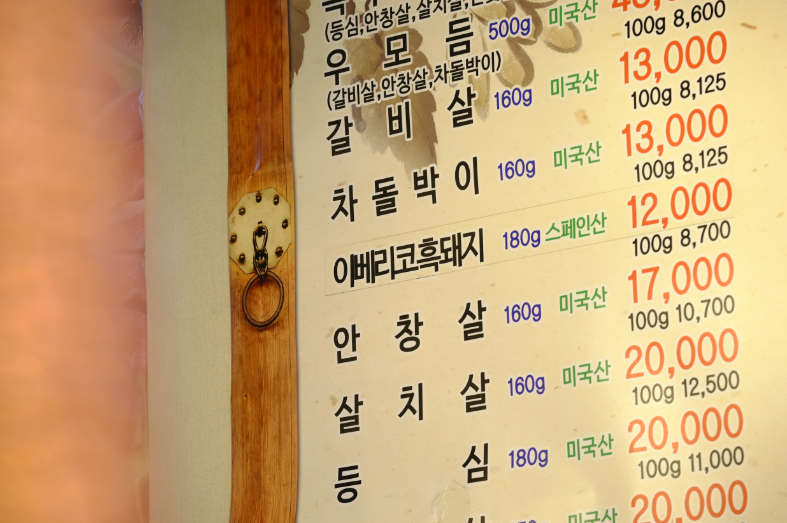 (등심,안창살,살치살,
우모듬 500g 미국산
100g 8,600
(갈비살,안창살,차돌박이)
갈비살 160g 미국산 13,000
100g 8,125
차돌박이 160g 미국산 13,000
100g 8,125
이베리코흑돼지 180g 스페인산 12,000
100g 8,700
안창살 160g 미국산 17,000
100g 10,700
살치살 160g 미국산 20,000
100g 12,500
등심 180g 미국산 20,000
100g 11,000
미국산 20,000